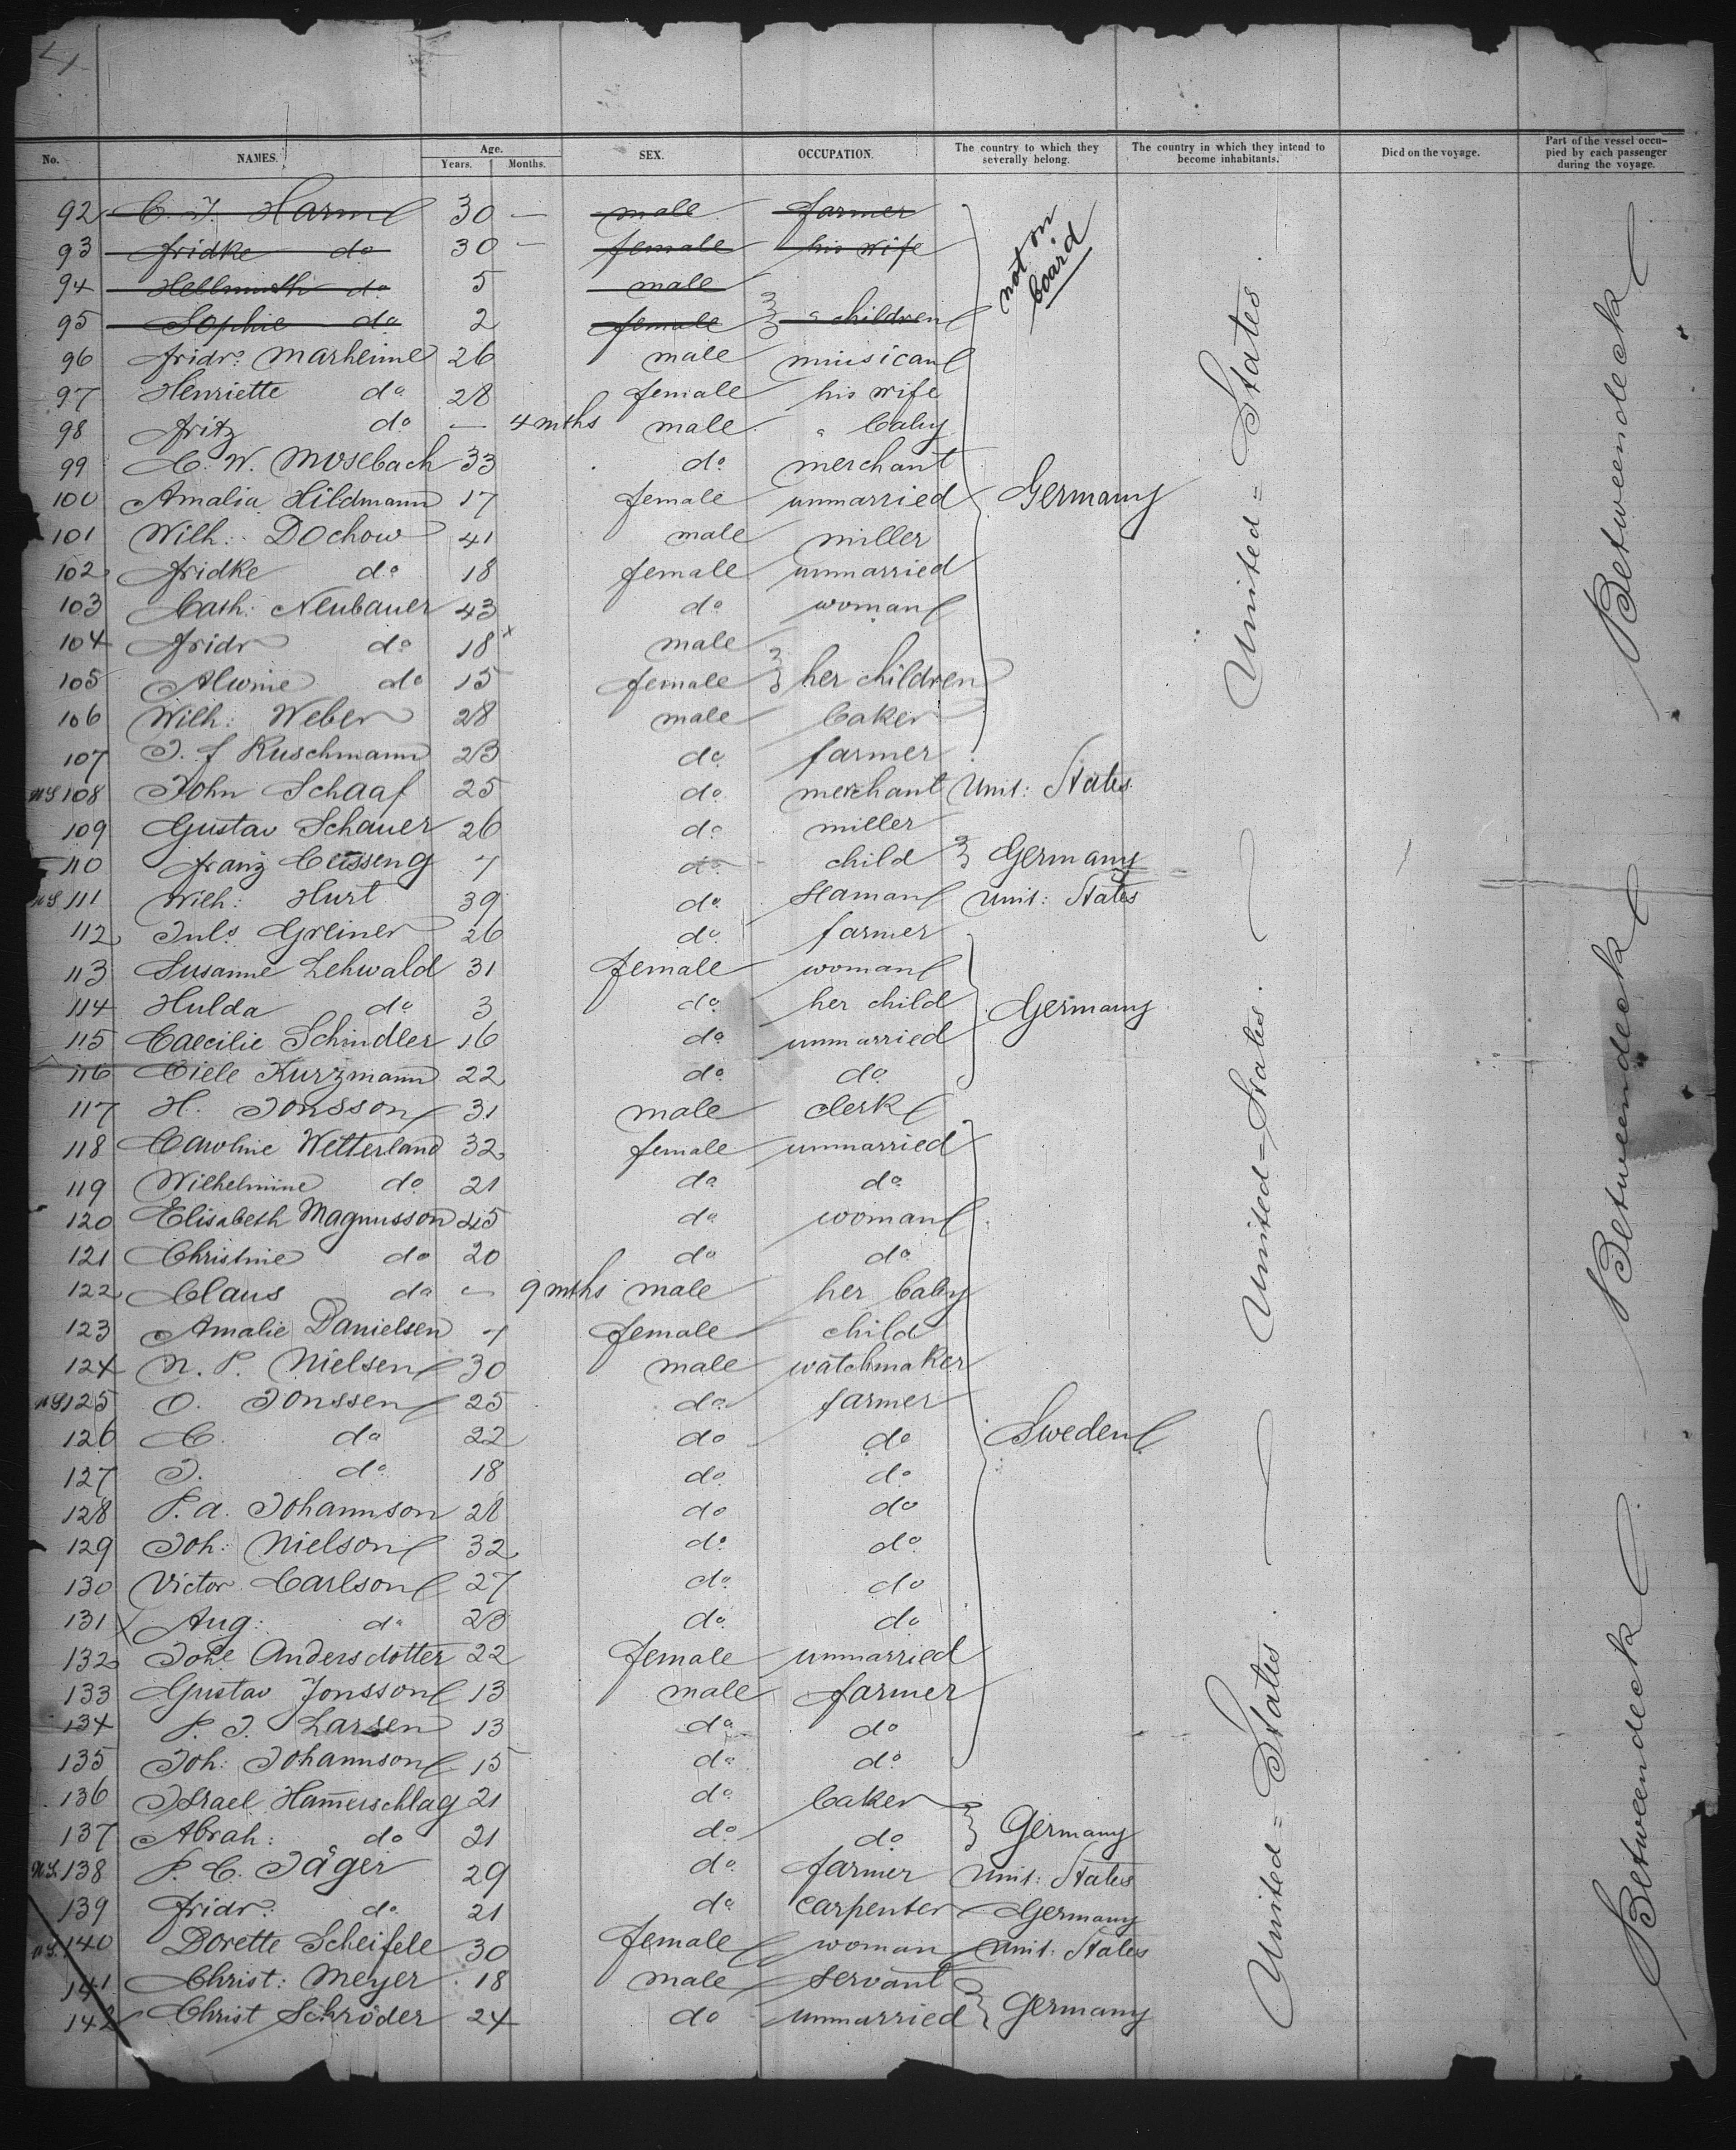 No. NAMES. Age. Years. Months. SEX. OCCUPATION. The country to which they severally belong. The country in which they intend to become inhabitants. Died on the voyage. Part of the vessel occupied by each passenger during the voyage.
92 C. J. Harm 30 — male farmer
93 Fridke do 30 — female his wife
94 Hellmuth do 5 male
95 Sophie do 2 female " children
not on board
96 Fridr. Marheine 26 male musican
97 Henriette do 28 female his wife
98 Fritz do — 4 mths male " baby
99 C. W. Mosebach 33 do merchant
100 Amalia Hildmann 17 female unmarried Germany
101 Wilh: Dochow 41 male miller
102 Fridke do 18 female unmarried
103 Cath: Neubauer 43 do woman
104 Fridr do 18 x male
105 Alwine do 15 female her children
106 Wilh: Weber 28 male baker
107 J. F Ruschmann 23 do farmer
US 108 John Schaaf 25 do merchant Unit: States
109 Gustav Schauer 26 do miller
110 Franz 7 do child Germany
US 111 Wilh: Hurt 39 do Seaman Unit: States
112 Juls Greiner 26 do farmer
113 Susanne Lehwald 31 female woman
114 Hulda do 3 do her child Germany
115 Caecilie Schindler 16 do unmarried
116 Ciele Kurzmann 22 do do
117 H. Jonsson 31 male clerk
118 Caroline Wetterland 32 female unmarried
119 Wilhelmine do 21 do do
120 Elisabeth Magnusson 45 do woman
121 Christine do 20 do do
122 Claus do — 9 mths male her baby
123 Amalie Danielsen 7 female child
124 N. P. Nielsen 30 male watchmaker
US 125 O. Jonssen 25 do farmer
126 C. do 22 do do Sweden
127 J. do 18 do do
128 P. A. Johannson 28 do do
129 Joh: Nielson 32 do do
130 Victor Carlson 27 do do
131 Aug: do 23 do do
132 Andersdotter 22 female unmarried
133 Gustav Jonsson 13 male farmer
134 P. J. Larsen 13 do do
135 Joh: Johannson 15 do do
136 Israel Hamerschlag 21 do baker
137 Abrah: do 21 do do Germany
US 138 P. C. Jäger 29 do farmer Unit: States
139 Fridr: do 21 do carpenter Germany
US 140 Dorette Scheifele 30 female woman Unit. States
141 Christ: Meyer 18 male servant
142 Christ Schröder 24 do unmarried Germany
United = States.
United = States.
United = States.
Betweendeck
Betweendeck
Betweendeck